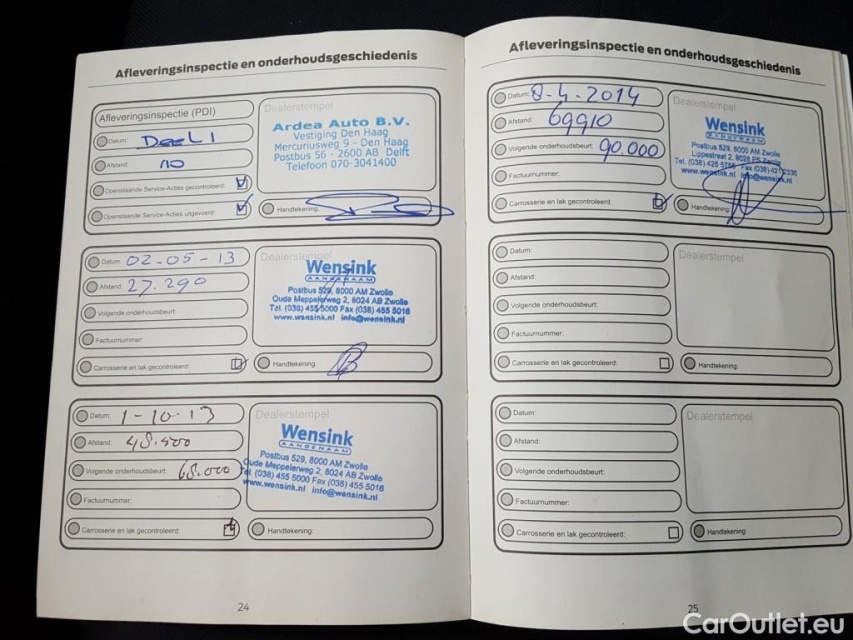 Afleveringsinspectie en onderhoudsgeschiedenis
Afleveringsinspectie (PDI)
Datum: Deel 1
Afstand: 10
Openstaande Service-Acties gecontroleerd:
Openstaande Service-Acties uitgevoerd:
Dealerstempel
Ardea Auto B.V.
Vestiging Den Haag
Mercuriusweg 9 - Den Haag
Postbus 56 - 2600 AB Delft
Telefoon 070-3041400
Handtekening:
Datum: 02-05-13
Afstand: 27.290
Volgende onderhoudsbeurt:
Factuurnummer:
Carrosserie en lak gecontroleerd:
Dealerstempel
Wensink
AANGENAAM
Postbus 529, 8000 AM Zwolle
Oude Meppelerweg 2, 8024 AB Zwolle
Tel. (038) 455 5000 Fax (038) 455 5016
www.wensink.nl info@wensink.nl
Handtekening:
Datum: 1-10-13
Afstand: 48.400
Volgende onderhoudsbeurt: 68.000
Factuurnummer:
Carrosserie en lak gecontroleerd:
Dealerstempel
Wensink
AANGENAAM
Postbus 529, 8000 AM Zwolle
Oude Meppelerweg 2, 8024 AB Zwolle
Tel. (038) 455 5000 Fax (038) 455 5016
www.wensink.nl info@wensink.nl
Handtekening:
24
Afleveringsinspectie en onderhoudsgeschiedenis
Datum: 8-4-2014
Afstand: 69910
Volgende onderhoudsbeurt: 90.000
Factuurnummer:
Carrosserie en lak gecontroleerd:
Dealerstempel
Wensink
AANGENAAM
Postbus 529, 8000 AM Zwolle
Lippestraat 2, 8028 PS Zwolle
Tel. (038) 425 Fax (038) 421 2236
www.wensink.nl info@wensink.nl
Handtekening:
Datum:
Afstand:
Volgende onderhoudsbeurt:
Factuurnummer:
Carrosserie en lak gecontroleerd:
Dealerstempel
Handtekening:
Datum:
Afstand:
Volgende onderhoudsbeurt:
Factuurnummer:
Carrosserie en lak gecontroleerd:
Dealerstempel
Handtekening:
25
CarOutlet.eu